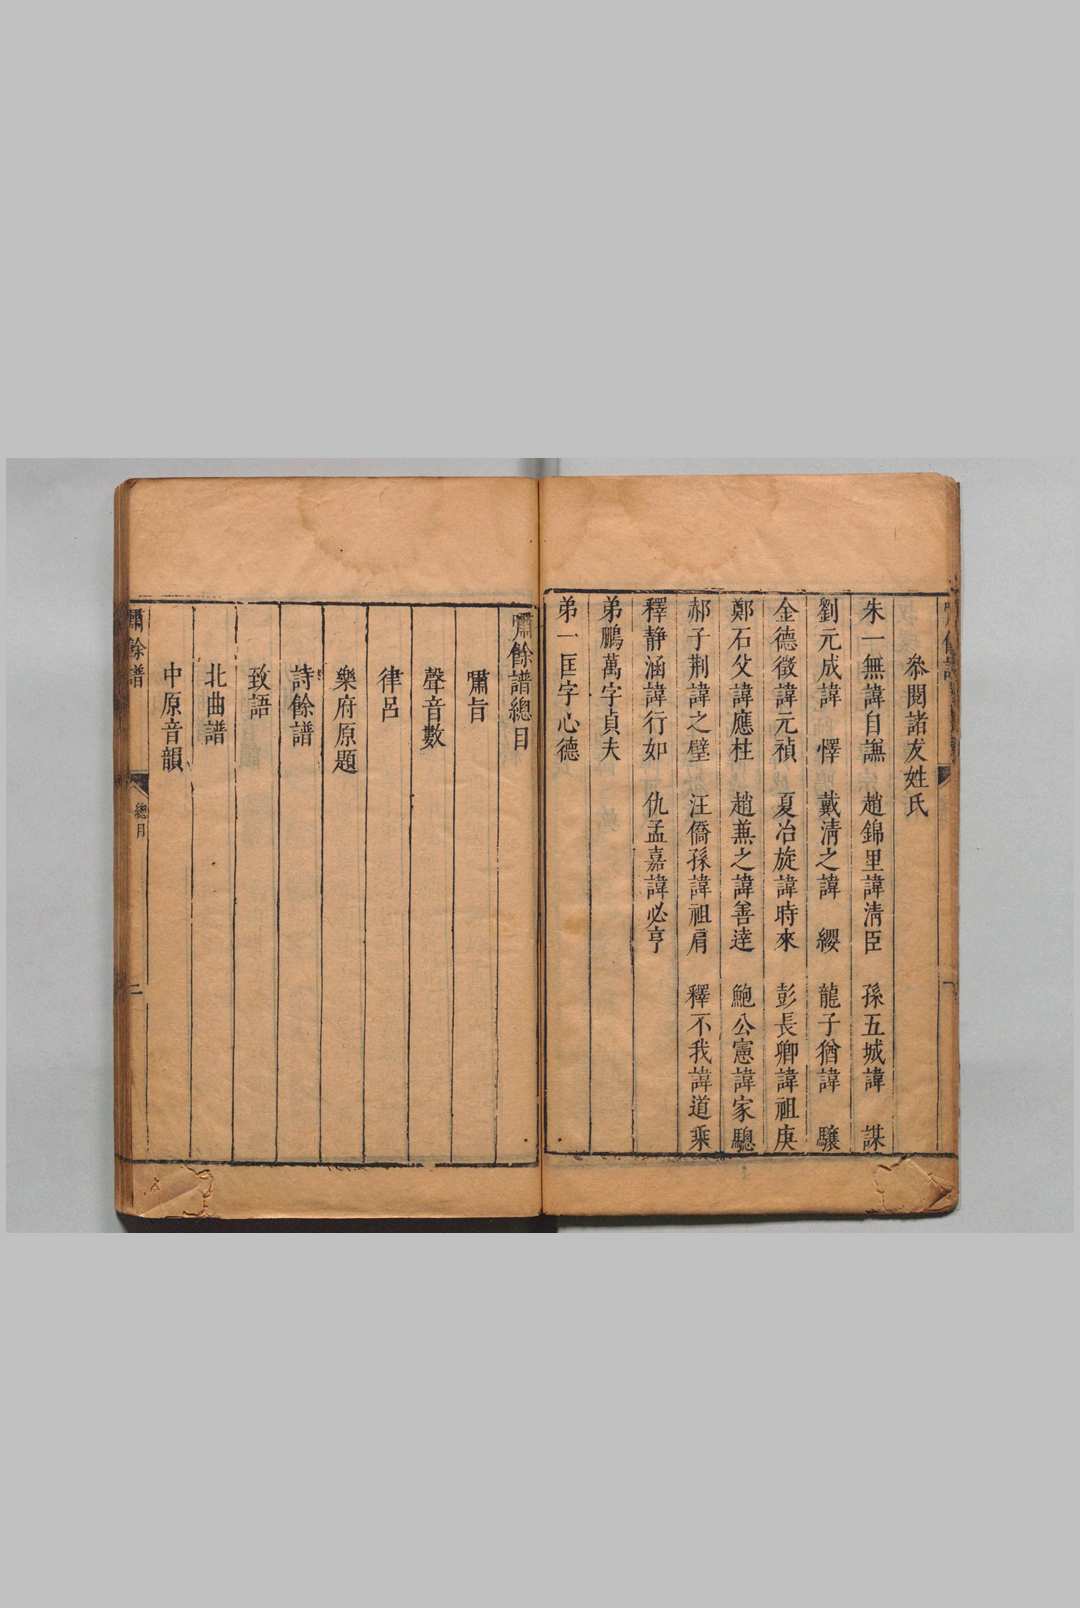 叅閱諸友姓氏
朱一無諱自謙 趙錦里諱淸臣 孫五城諱 謀
劉元成諱 懌 戴淸之諱 纓 龍子猶諱 驤
金德徵諱元禎 夏冶旋諱時來 彭長卿諱祖庚
鄭石父諱應柱 趙蒹之諱善達 鮑公憲諱家驄
郝子荆諱之璧 汪僑孫諱祖肩 釋不我諱道乘
釋静涵諱行如 仇孟嘉諱必亨
弟鵬萬字貞夫
弟一匡字心德
嘯餘譜總目
嘯旨
聲音數
律呂
樂府原題
詩餘譜
致語
北曲譜
中原音韻
嘯餘譜
總目
二